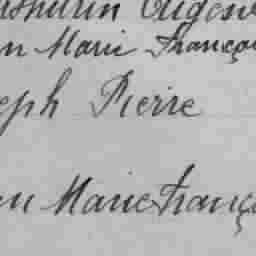 athurin Eugène
n Marie Françoi
eph Pierre
en Marie Franço